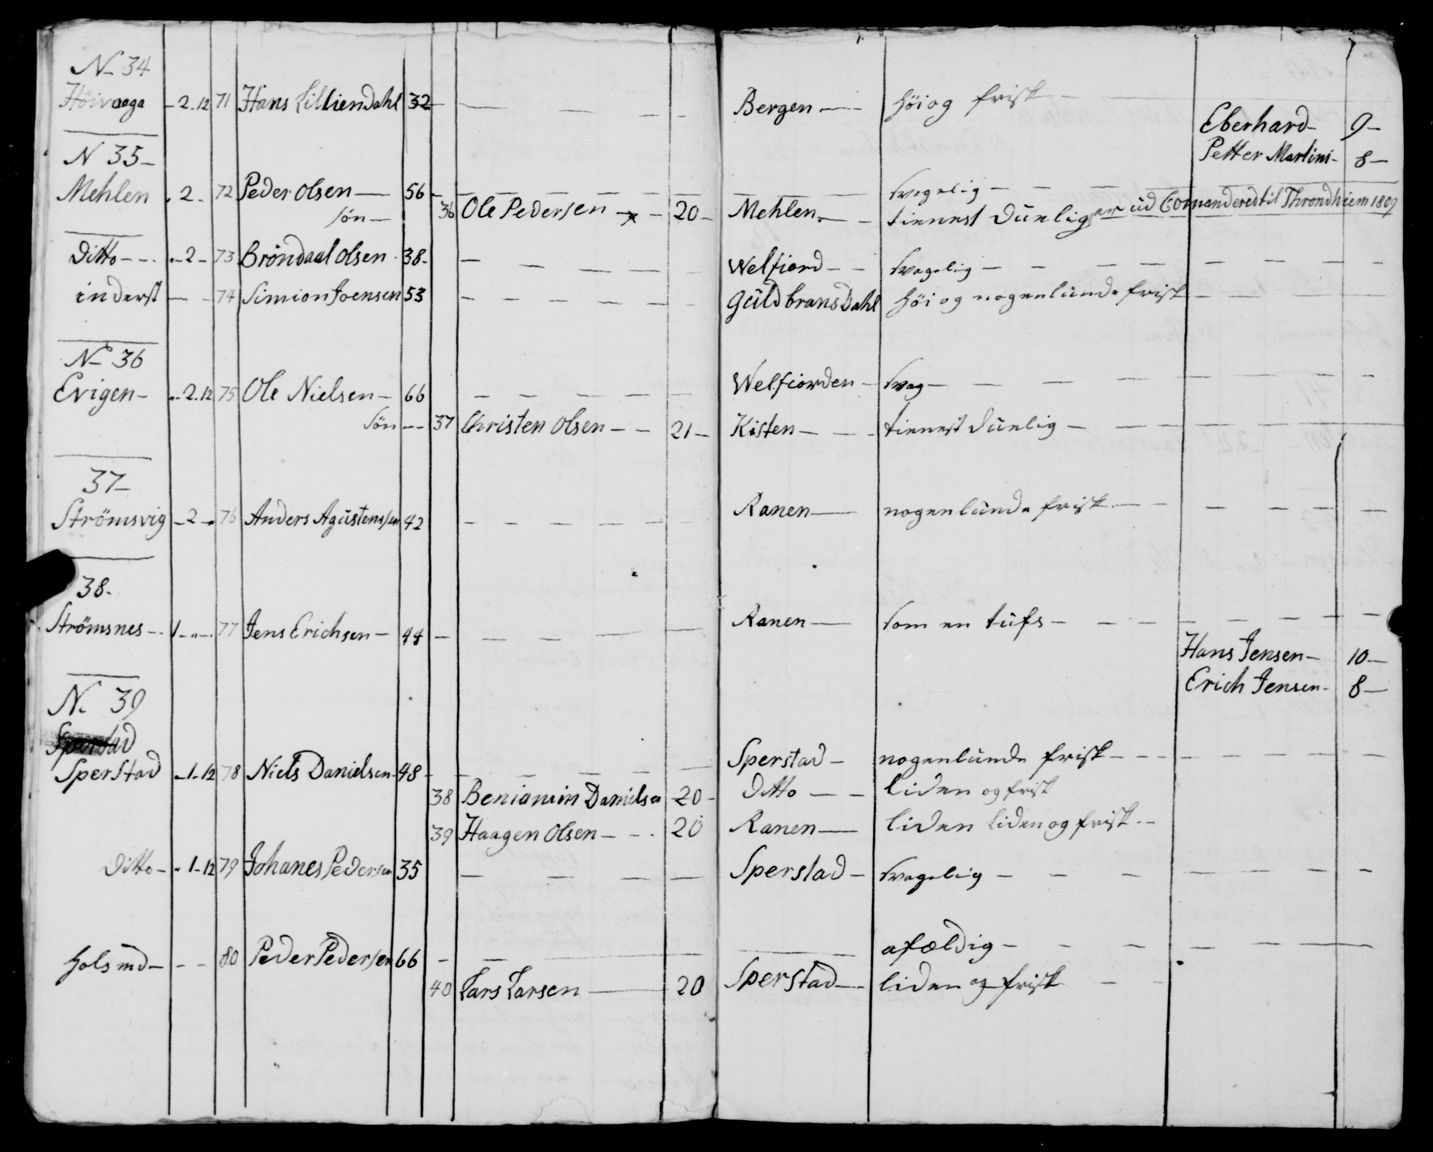 N 34
Höivaaga - 2. 12 71 Hans Lilliendahl 32 - Bergen - höi og frisk -
Eberhard - 9 -
Petter Martini - 8 -
N 35 -
Mehlen . 2 - 72 Peder Olsen - 56 - svagelig -
søn - 36 Ole Pedersen - x - 20 - Mehlen - tienest dünlig er üd Comanderedt til Throndhiem 1809
Ditto - .. - 2 - 73 Bröndaal Olsen - 38 - Welfiord - svagelig -
inderst - 74 Simion Joensen 53 Güldbrans Dahl höi og nogenlünde frisk -
N 36
Evigen - .. 2. 12 75 Ole Nielsen - 66 Welfiorden - svag -
Søn - 37 Christen Olsen - 21 - Kisten - tienest dünlig -
37 -
Strömsvig - 2 - 76 Anders Agüstensen 42 Ranen - nogenlünde frisk -
38 -
Strömsnes - 1 - 77 Jens Erichsen - 44 - Ranen - som en tüfs -
Hans Jensen - 10 -
Erich Jensen - 8 -
N. 39
Sperstad
Sperstad - 1. 12 78 Niels Danielsen 48 - Sperstad - nogenlünde frisk -
38 Beniamin Danielsen 20 - Ditto - liden og frisk
39 Haagen Olsen - 20 Ranen - liden liden og frisk -
Ditto - . 1 - 12 79 Johanes Pedersen 35 Sperstad - svagelig -
80 Peder Pedersen 66 - afældig -
40 Lars Larsen - 20 Sperstad - liden og frisk